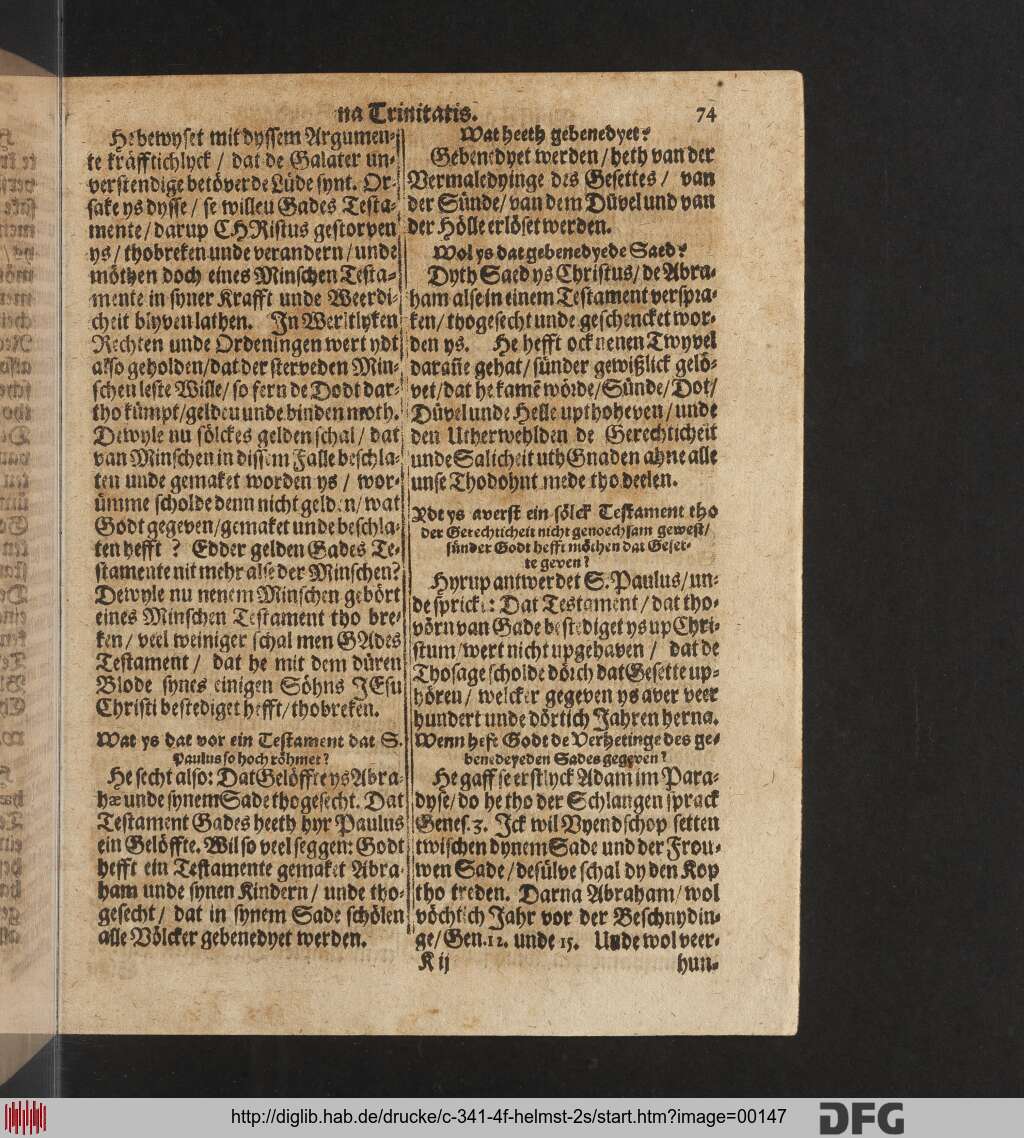 na Trinitatis.
74
He bewyset mit dyssem Argumen-
te kräfftichlyck / dat de Galater un-
verstendige betöverde Lüde synt. Or-
sake ys dysse / se willen Gades Testa-
mente / darup CHRistus gestorven
ys / thobreken unde verandern / unde
möthen doch eines Minschen Testa-
mente in syner Krafft unde Weerdi-
cheit blyven lathen. In Werltlyken
Rechten unde Ordeningen wert ydt
also geholden / dat der sterveden Min-
schen leste Wille / so fern de Dodt dar-
tho kümpt / gelden unde binden moth.
Dewyle nu sölckes gelden schal / dat
van Minschen in dissem Falle beschla-
ten unde gemaket worden ys / wor-
ümme scholde denn nicht gelden / wat
Godt gegeven / gemaket unde beschla-
ten hefft ? Edder gelden Gades Te-
stamente nit mehr alse der Minschen?
Dewyle nu nenem Minschen gebört
eines Minschen Testament tho bre-
ken / veel weiniger schal men GAdes
Testament / dat he mit dem düren
Blode synes einigen Söhns JEsu
Christi bestediget hefft / thobreken.
Wat ys dat vor ein Testament dat S.
Paulus so hoch röhmet?
He secht also: Dat Gelöffte ys Abra-
hæ unde synem Sade thogesecht. Dat
Testament Gades heeth hyr Paulus
ein Gelöffte. Wil so veel seggen: Godt
hefft ein Testamente gemaket Abra-
ham unde synen Kindern / unde tho-
gesecht / dat in synem Sade schölen
alle Völcker gebenedyet werden.
Wat heeth gebenedyet?
Gebenedyet werden / heth van der
Vermaledyinge des Gesettes / van
der Sünde / van dem Düvel und van
der Hölle erlöset werden.
Wol ys dat gebenedyede Saed?
Dyth Saed ys Christus / de Abra-
ham alse in einem Testament verspra-
ken / thogesecht unde geschencket wor-
den ys. He hefft ock nenen Twyvel
darañe gehat / sünder gewißlick gelö-
vet / dat he kamẽ wörde / Sünde / Dot /
Düvel unde Helle upthoheven / unde
den Utherwehlden de Gerechticheit
unde Salicheit uth Gnaden ahne alle
unse Thodohnt mede tho deelen.
Ydt ys averst ein sölck Testament tho
der Gerechticheit nicht genoechsam gewest /
sünder Godt hefft möthen dat Geset-
te geven?
Hyrup antwerdet S. Paulus / un-
de sprickt: Dat Testament / dat tho-
vörn van Gade bestediget ys up Chri-
stum / wert nicht upgehaven / dat de
Thosage scholde dörch dat Gesette up-
hören / welcker gegeven ys aver veer
hundert unde dörtich Jahren herna.
Wenn heft Godt de Verhetinge des ge-
benedeyeden Sades gegeven?
He gaff se erstlyck Adam im Para-
dyse / do he tho der Schlangen sprack
Genes. 3. Ick wil Vyendschop setten
twischen dynem Sade und der Frou-
wen Sade / desülve schal dy den Kop
tho treden. Darna Abraham / wol
vöchtich Jahr vor der Beschnydin-
ge / Gen. 12. unde 15. Unde wol veer-
K ij
hun-
http://diglib.hab.de/drucke/c-341-4f-helmst-2s/start.htm?image=00147
DFG